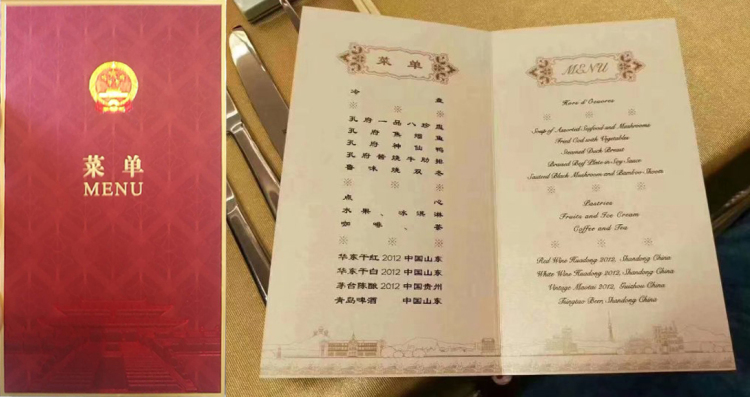 菜单
MENU
菜 单
冷 盘
孔 府 一 品 八 珍 盅
孔 府 焦 熘 鱼
孔 府 神 仙 鸭
孔 府 酱 烧 牛 肋 排
鲁 味 烧 双 冬
点 心
水 果 、 冰 淇 淋
咖 啡 、 茶
华东干红 2012 中国山东
华东干白 2012 中国山东
茅台陈酿 2012 中国贵州
青岛啤酒 中国山东
MENU
Hors d'Oeuvres
Soup of Assorted Seafood and Mushrooms
Fried Cod with Vegetables
Steamed Duck Breast
Braised Beef Plate in Soy Sauce
Sauteed Black Mushroom and Bamboo Shoots
Pastries
Fruits and Ice Cream
Coffee and Tea
Red Wine Huadong 2012, Shandong China
White Wine Huadong 2012, Shandong China
Vintage Maotai 2012, Guizhou China
Tsingtao Beer, Shandong China